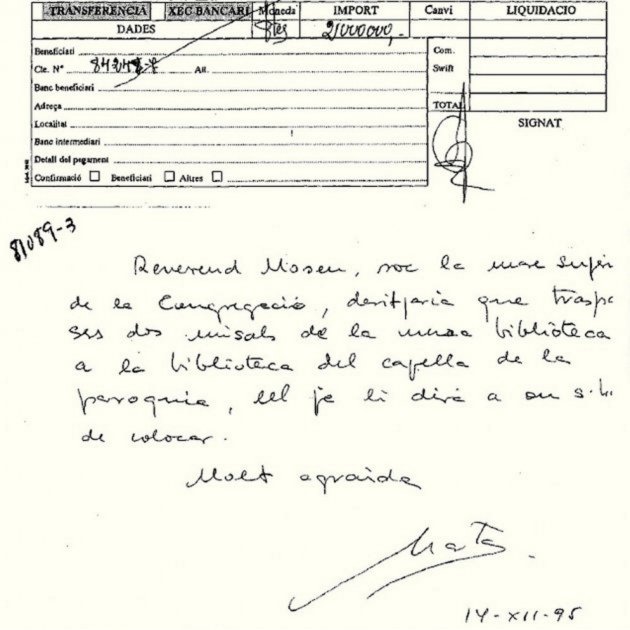 TRANSFERENCIA XEC BANCARI Moneda IMPORT Canvi LIQUIDACIO
DADES Ptes 2.000.000,-
Beneficiari
Cte. Nº 84248-8 Alt.
Banc beneficiari
Adreça
Localitat
Banc intermediari
Detall del pagament
Confirmació Beneficiari Altres
Com.
Swift
TOTAL
SIGNAT
81089-3
Reverend Mosen, soc la mare super
de la Congregació, desitjaria que traspa
ses dos misals de la meva biblioteca
a la biblioteca del capella de la
parroquia, ell ja li dirà a on s'ha
de colocar.
Molt agraida
Marta
14-XII-95